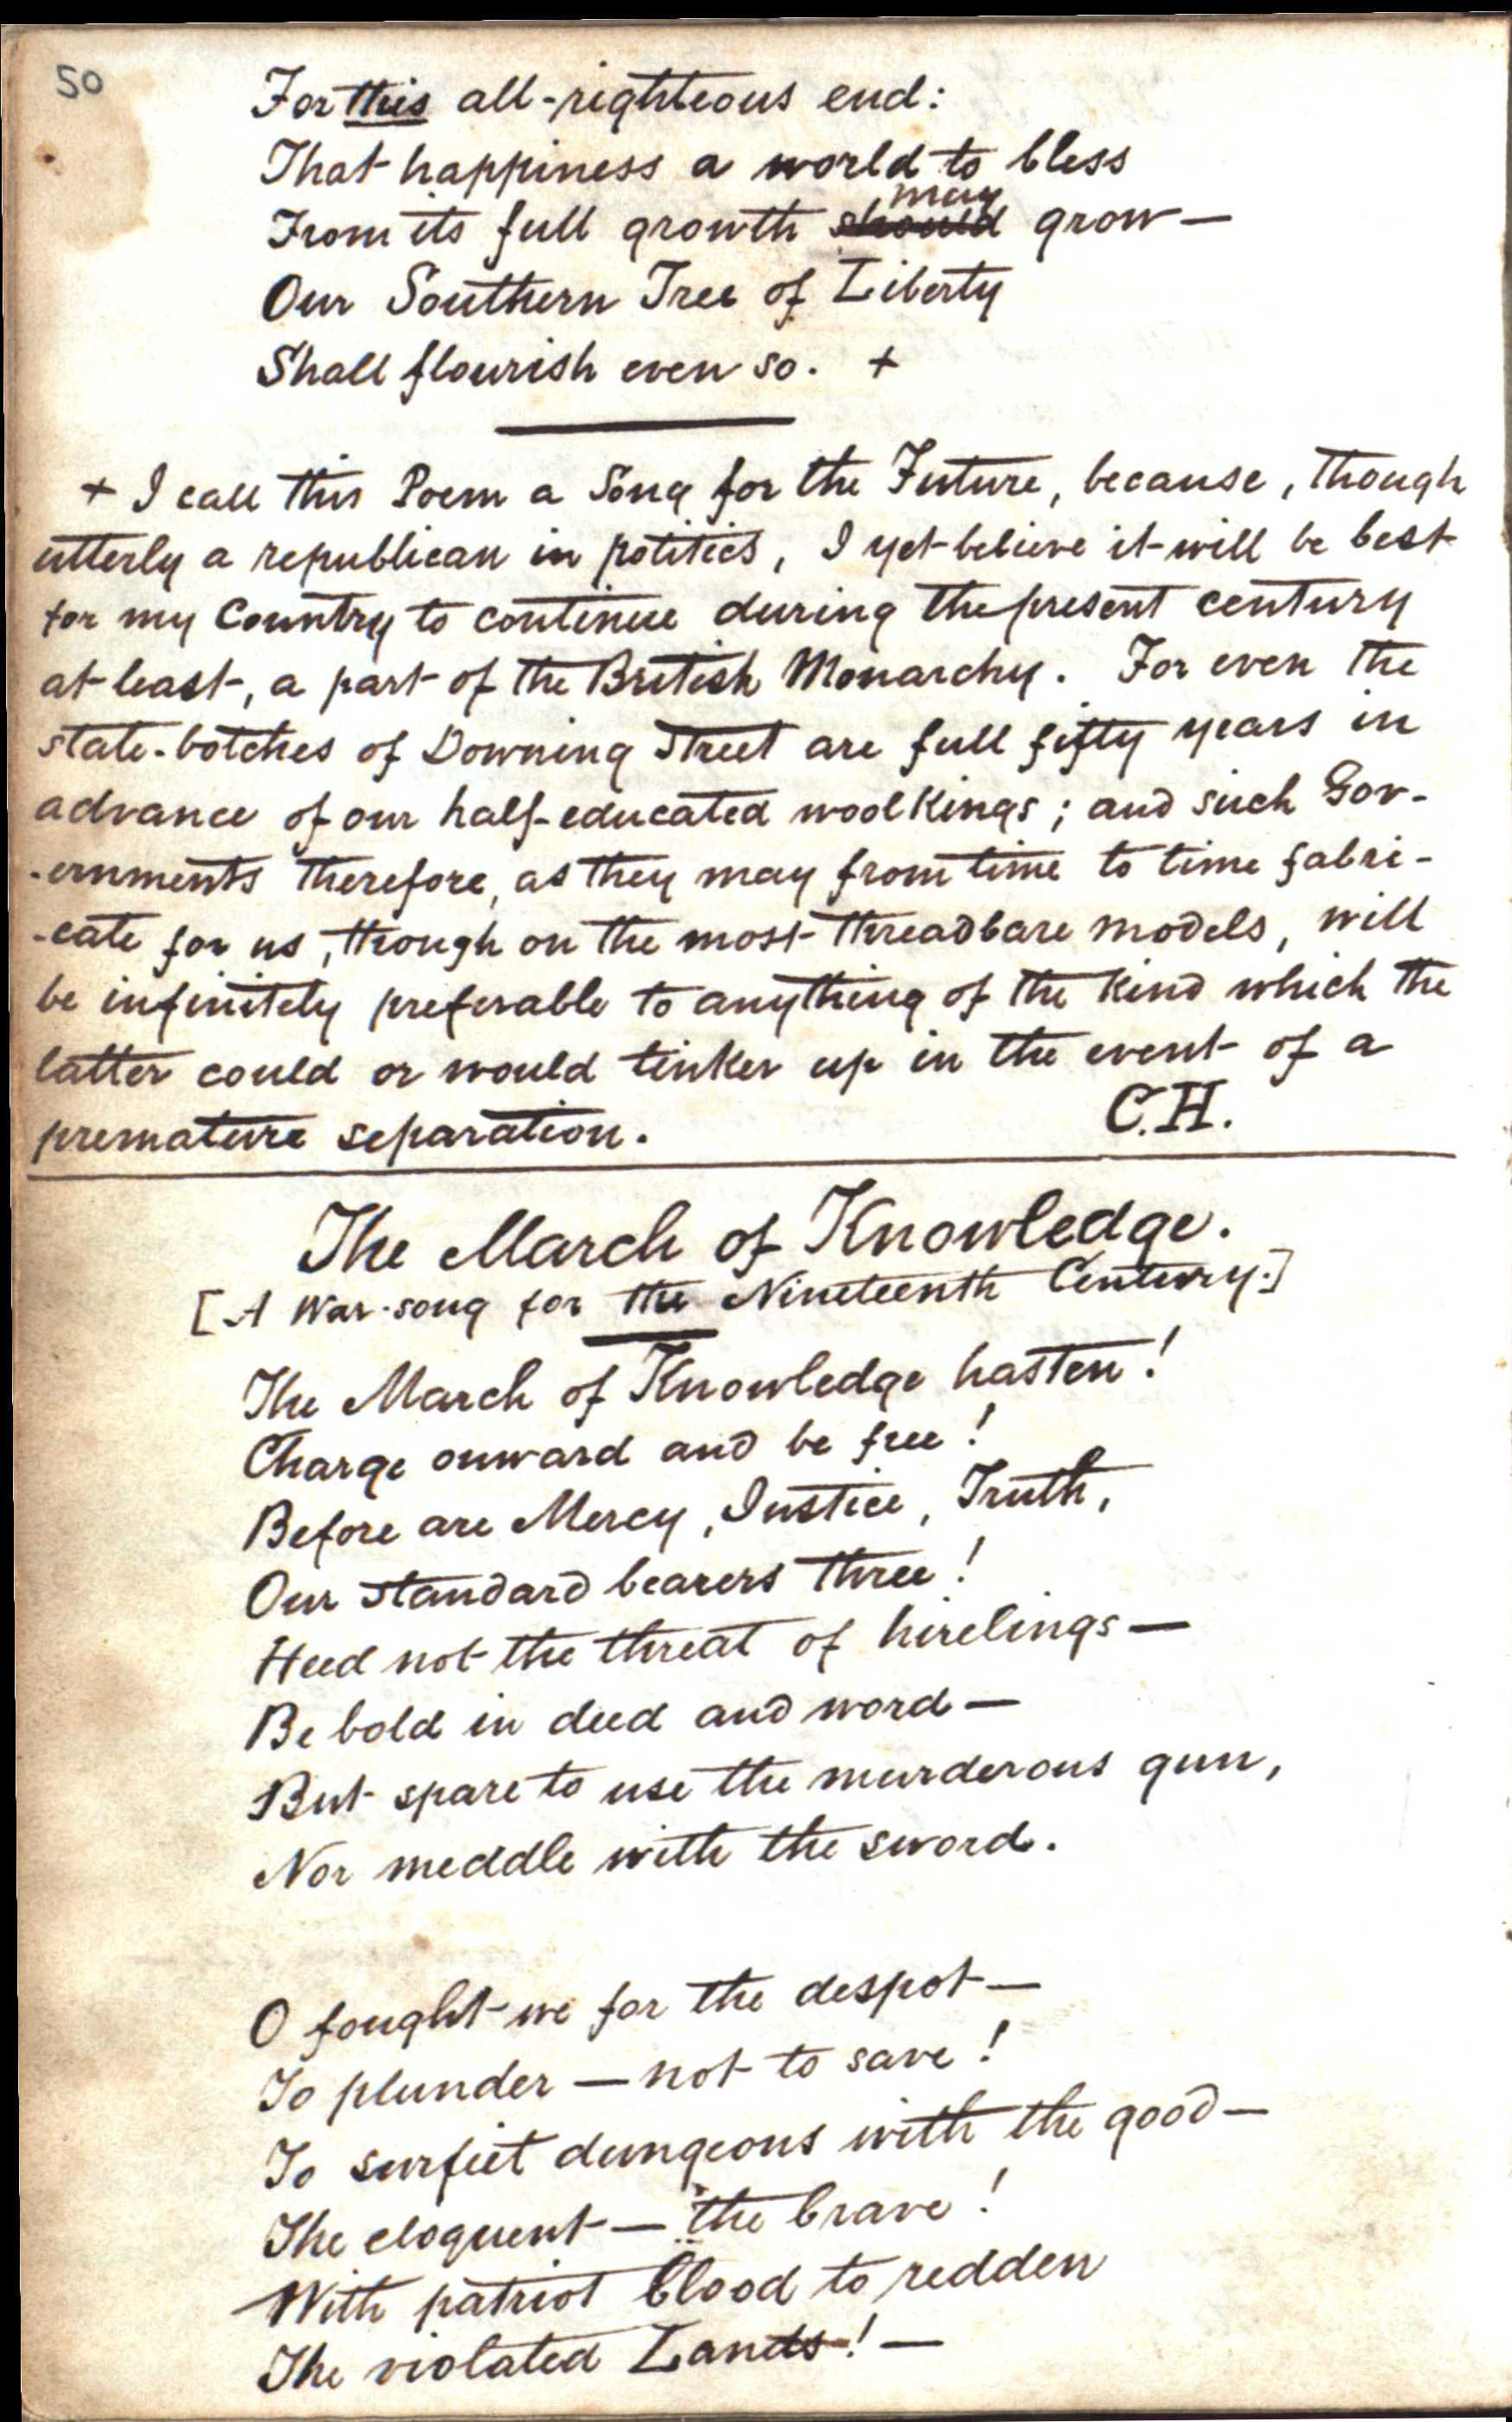 50
For this all-righteous end:
That happiness a world to bless
may
From its full growth should grow—
Our Southern Tree of Liberty
Shall flourish even so. +
+ I call this Poem a Song for the Future, because, though
utterly a republican in politics, I yet believe it will be best
for my Country to continue during the present century
at least, a part of the British Monarchy. For even the
state-botches of Downing Street are full fifty years in
advance of our half-educated wool Kings; and such Gov-
-ernments therefore, as they may from time to time fabri-
-cate for us, though on the most threadbare models, will
be infinitely preferable to anything of the kind which the
latter could or would tinker up in the event of a
premature separation. C.H.
The March of Knowledge.
[A War-song for the Nineteenth Century.]
The March of Knowledge hasten!
Charge onward and be free!
Before are Mercy, Justice, Truth,
Our standard bearers three!
Heed not the threat of hirelings—
Be bold in deed and word—
But spare to use the murderous gun,
Nor meddle with the sword.
O fought we for the despot—
To plunder — not to save!
To surfeit dungeons with the good—
The eloquent — the brave!
With patriot blood to redden
The violated Lands! —